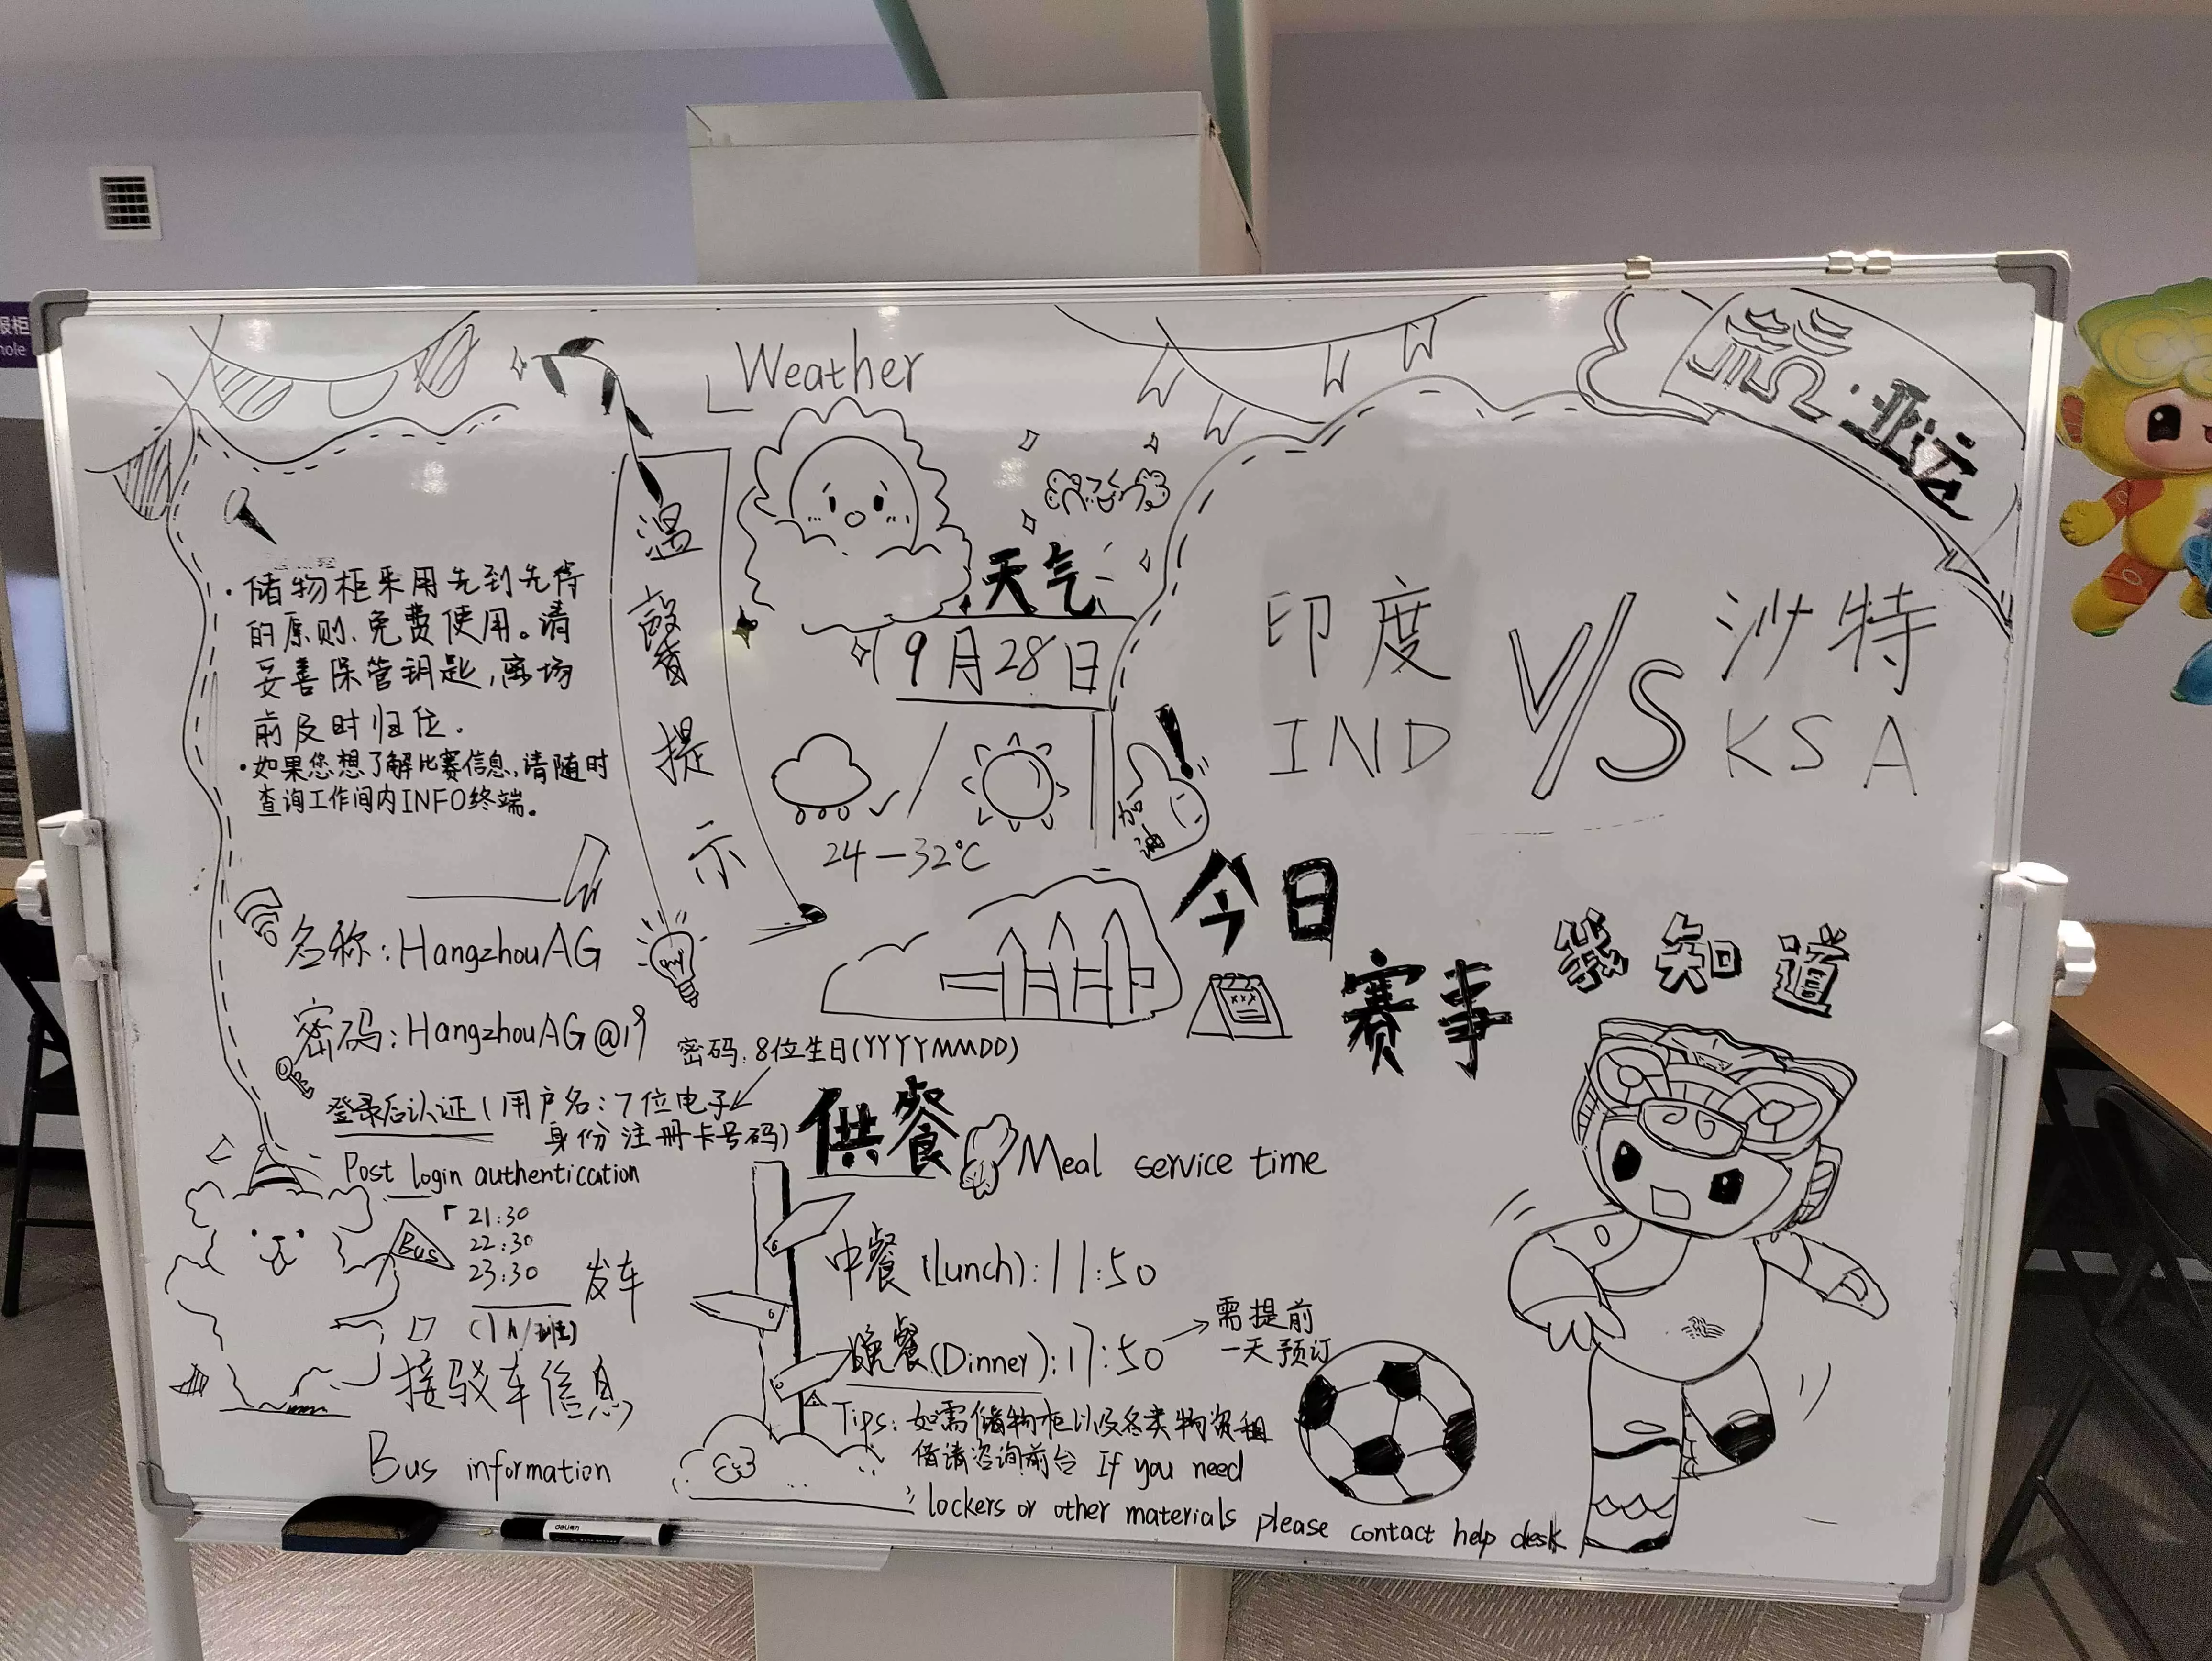 Weather
杭·亚运
温
馨
提
示
·储物柜采用先到先得
的原则、免费使用。请
妥善保管钥匙,离场
前及时归位.
·如果您想了解比赛信息,请随时
查询工作间内INFO终端。
名称:HangzhouAG
密码:HangzhouAG@19
密码:8位生日(YYYYMMDD)
登录后认证(用户名:7位电子
身份注册卡号码)
Post login authentication
Bus
21:30
22:30
23:30
发车
(1h/班)
接驳车信息
Bus information
天气
9月28日
24—32℃
加
油
印度 VS 沙特
IND KSA
今日
赛事
我知道
供餐 Meal service time
中餐(Lunch):11:50
晚餐(Dinner):17:50
需提前
一天预订
Tips:如需储物柜以及各类物资租
借请咨询前台 If you need
lockers or other materials please contact help desk
报柜
hole
deli得力